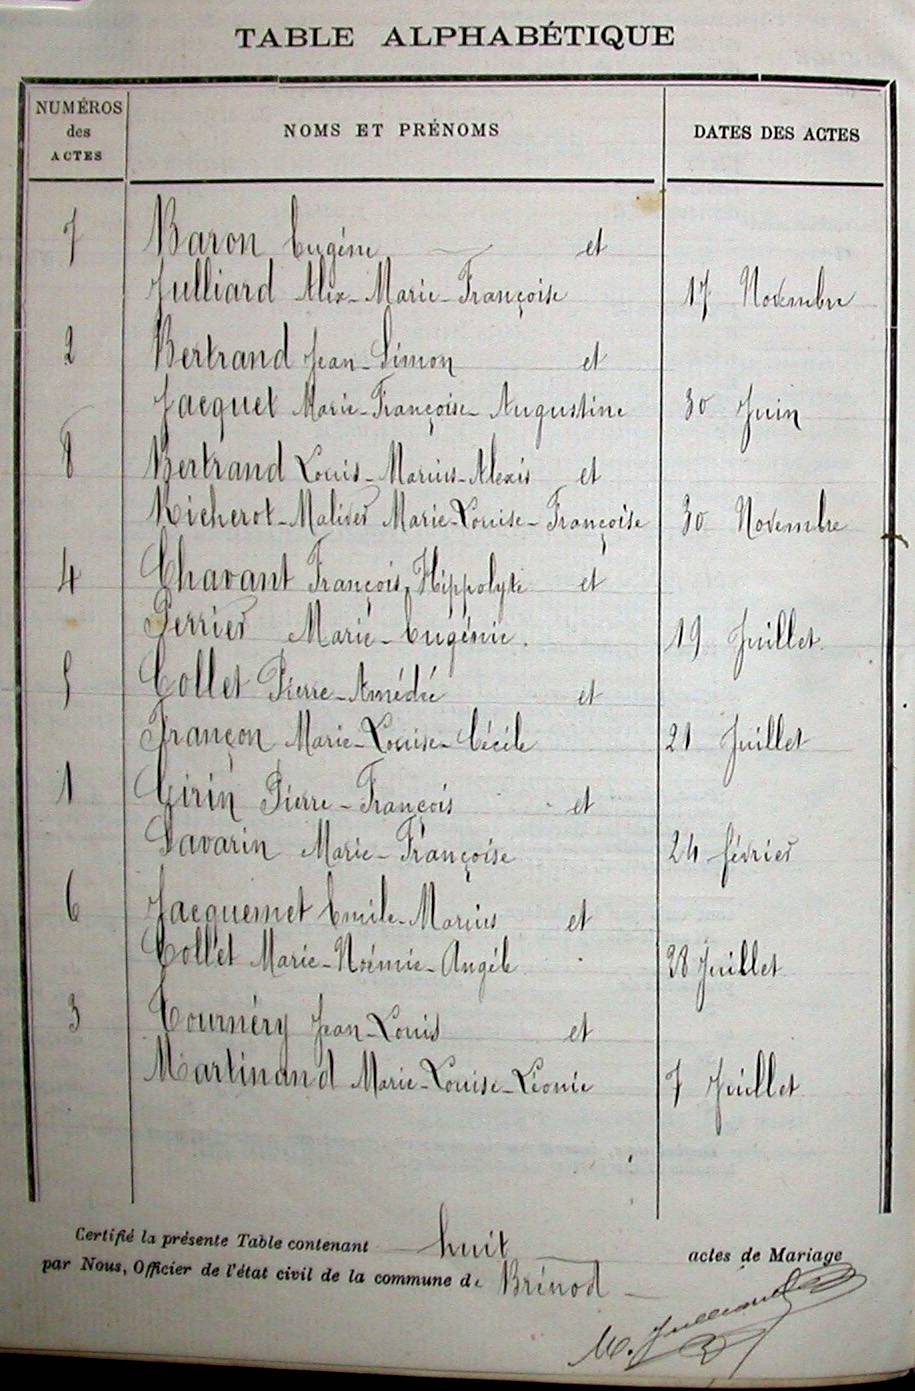 TABLE ALPHABÉTIQUE
NUMÉROS des ACTES
NOMS ET PRÉNOMS
DATES DES ACTES
7 Baron Eugène et
Julliard Alix-Marie-Françoise 17 Novembre
2 Bertrand Jean-Simon et
Jacquet Marie-Françoise-Augustine 30 Juin
8 Bertrand Louis-Marius-Alexis et
Richerot-Maliver Marie-Louise-Françoise 30 Novembre
4 Chavant François, Hippolyte et
Perrier Marie-Eugénie. 19 Juillet
5 Collet Pierre-Amédée et
Françon Marie-Louise-Cécile 21 Juillet
1 Girin Pierre-François et
Savarin Marie-Françoise 24 février
6 Jacquemet Emile-Marius et
Collet Marie-Noémie-Angèle 28 Juillet
3 Tournéry Jean-Louis et
Martinand Marie-Louise-Léonie 7 Juillet
Certifié la présente Table contenant huit actes de Mariage
par Nous, Officier de l'état civil de la commune de Brénod
M. Julliard